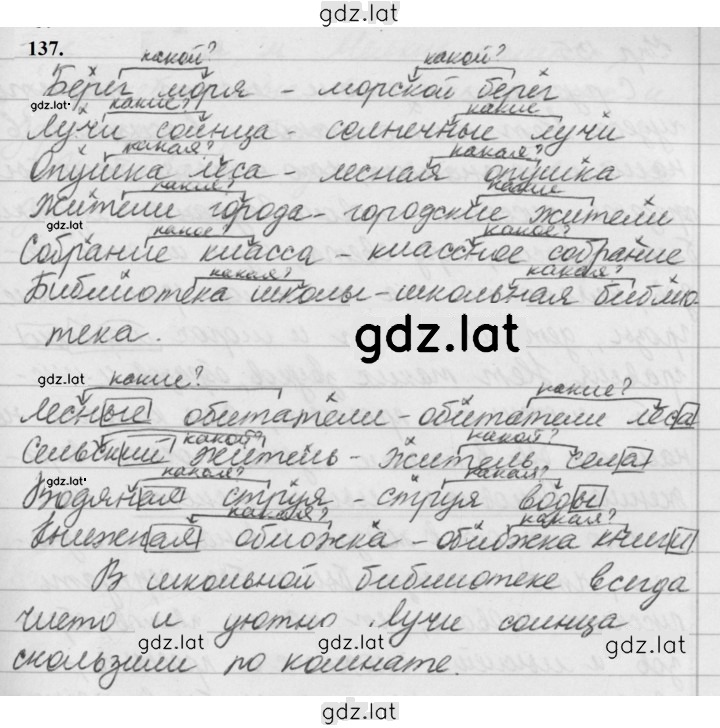 gdz.lat
137.
какой? какой?
Берег моря – морской берег
gdz.lat
какие? какие
Лучи солнца – солнечные лучи
какая? какая?
Опушка леса – лесная опушка
какие? какие
Жители города – городские жители
gdz.lat
какое? какое?
Собрание класса – классное собрание
какая? какая?
Библиотека школы – школьная библио
тека.
gdz.lat
gdz.lat
какие? какие?
Лесные обитатели – обитатели леса
какой? какой?
Сельский житель – житель села
gdz.lat
какая? какая?
Водяная струя – струя воды
какая? какая?
Книжная обложка – обложка книги
В школьной библиотеке всегда
чисто и уютно. Лучи солнца
gdz.lat gdz.lat
скользили по комнате.
gdz.lat